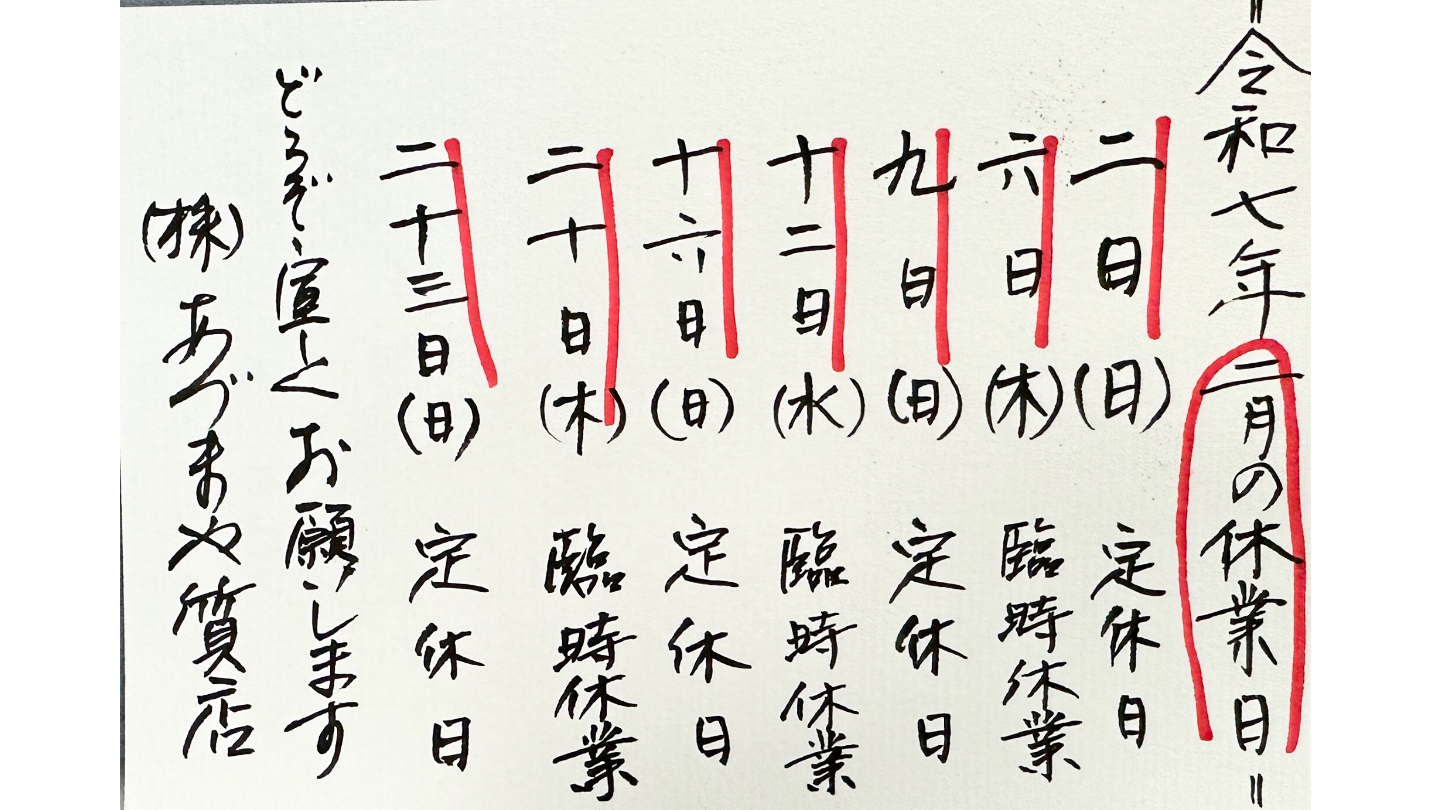 =令和七年二月の休業日=
二日(日) 定休日
六日(木) 臨時休業
九日(日) 定休日
十二日(水) 臨時休業
十六日(日) 定休日
二十日(木) 臨時休業
二十三日(日) 定休日
どうぞ、宜しくお願いします
(株)あづまや質店